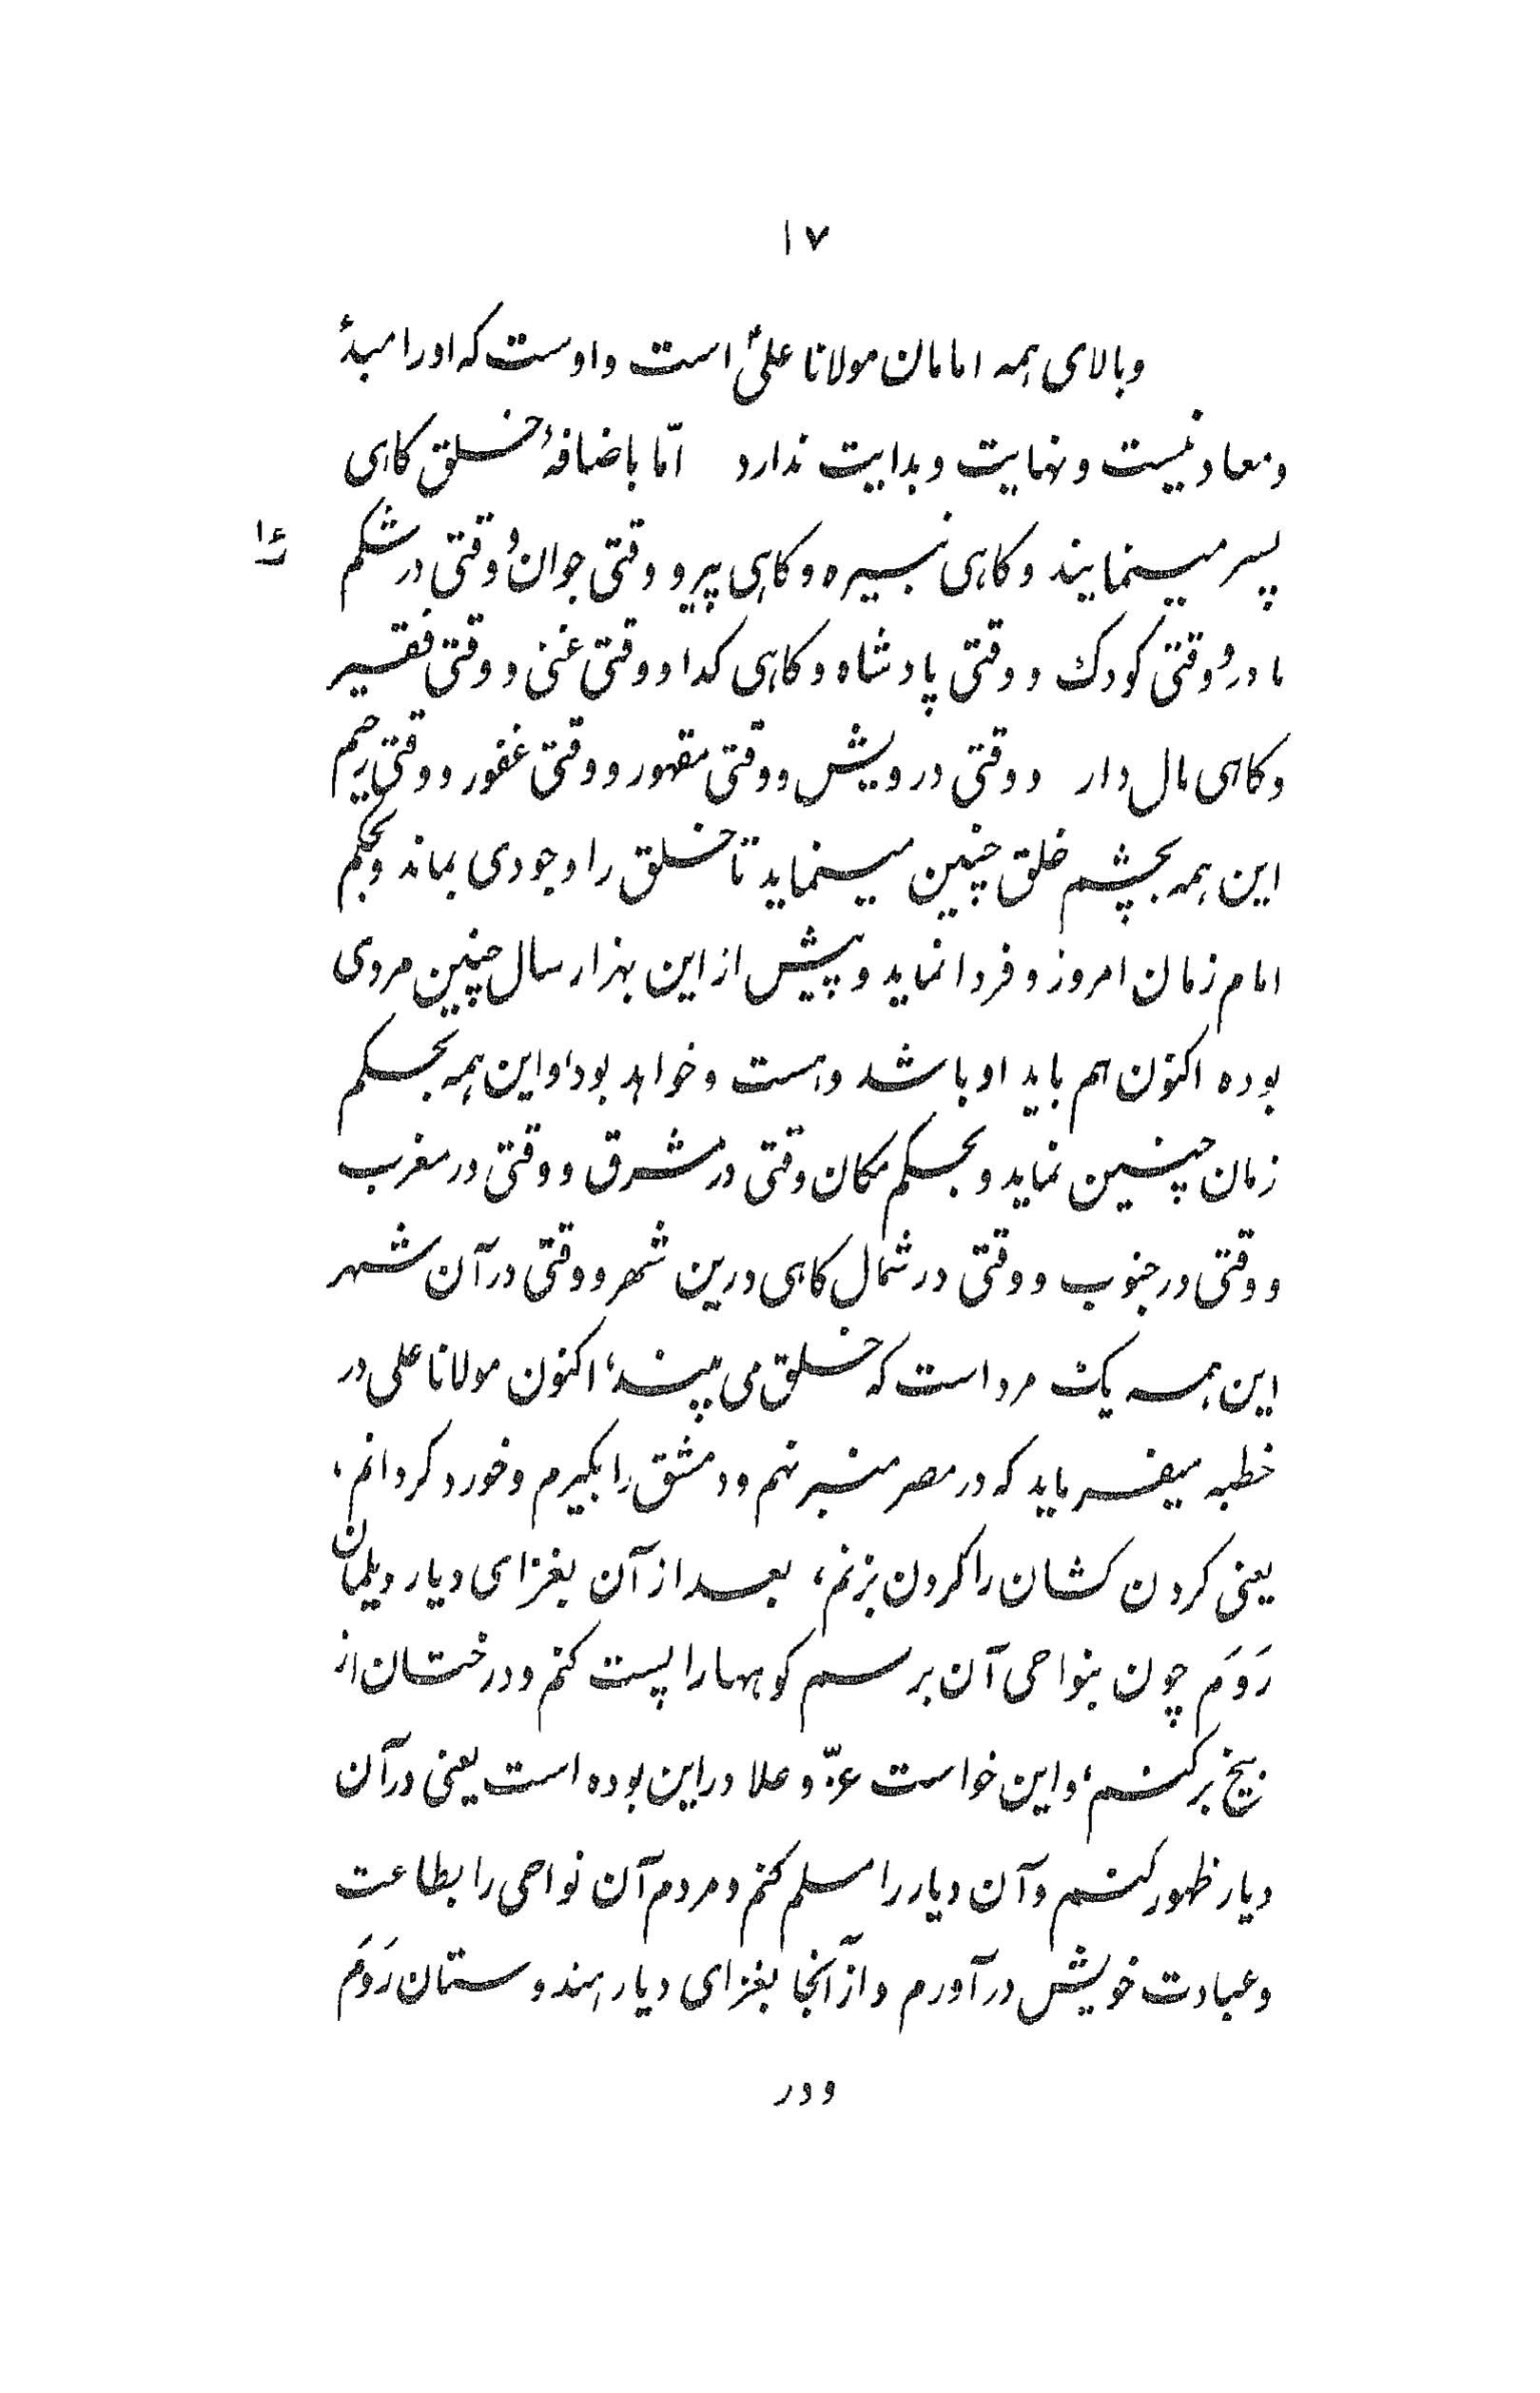 ۱۷
وبالای همه امامان مولانا علیؑ است واوست که اورا مبدأ
ومعاد نیست ونهایت وبدایت ندارد امّا باضافهٔ خلق کاهی
پسر مینمایند وکاهی نبسیره وکاهی پیر و وقتی جوان وُ وقتی در شکم
مادر وُ وقتی کودک و وقتی پادشاه وکاهی کدا و وقتی غنی و وقتی فقیر
وکاهی مال دار و وقتی درویش و وقتی مقهور و وقتی غفور و وقتی رحیم
این همه بچشم خلق چنین مینماید تا خلق را وجودی بماند وبحکم
امام زمان امروز و فردا نماید و پیش از این بهزار سال چنین مردی
بوده اکنون هم باید او باشد وهست وخواهد بود، واین همه بحکم
زمان چنین نماید وبحکم مکان وقتی در مشرق و وقتی در مغرب
و وقتی در جنوب و وقتی در شمال کاهی درین شهر و وقتی در آن شهر
این همه یک مرد است که خلق می بیند، اکنون مولانا علی در
خطبه میفرماید که در مصر منبر نهم ودمشق را بکیرم وخورد کردانم،
یعنی کردن کشان را کردن بزنم، بعد از آن بغزای دیار دیلمان
رَوَم چون بنواحی آن برسم کوهها را پست کنم ودرختان از
بیخ برکنم، واین خواست عزّ وعلا در این بوده است یعنی درآن
دیار ظهور کنم وآن دیار را مسلم کنم ومردم آن نواحی را بطاعت
وعبادت خویش درآورم واز آنجا بغزای دیار هندوستان رَوَم
ودر